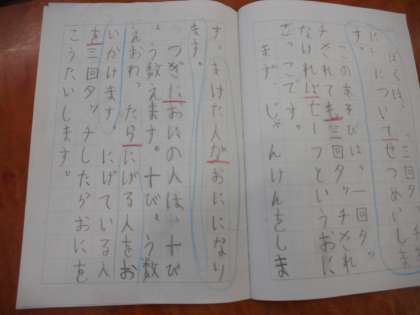 ぼくは、三回タッチ
に、についてせつめいしま
す。
このあそびは、一回タッ
チされても三回タッチされ
なければセーフというおに
ごっこです。
まず、じゃんけんをしま
す。まけた人がおにになり
ます。
つぎに、おにの人は、十び
ょう数えます。十びょう数
えおわったらにげる人をお
いかけます。にげている人
を三回タッチしたらおにを
こうたいします。